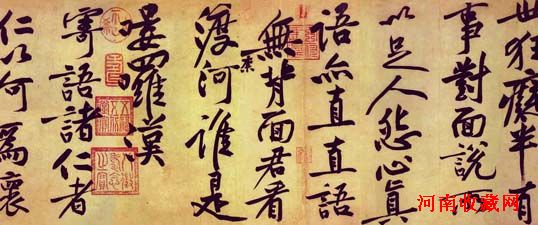 世狂癡半有
事對面說所
以足人怨心真
語亦直直語
無背面君看
渡奈河誰是
嘍羅漢
寄語諸仁者
仁以何爲懷
河南收藏网